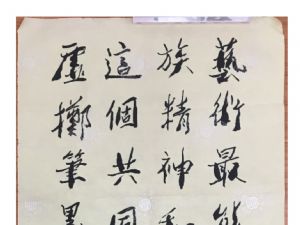 藝術最能
族精神和
這個共同
虛擲筆墨